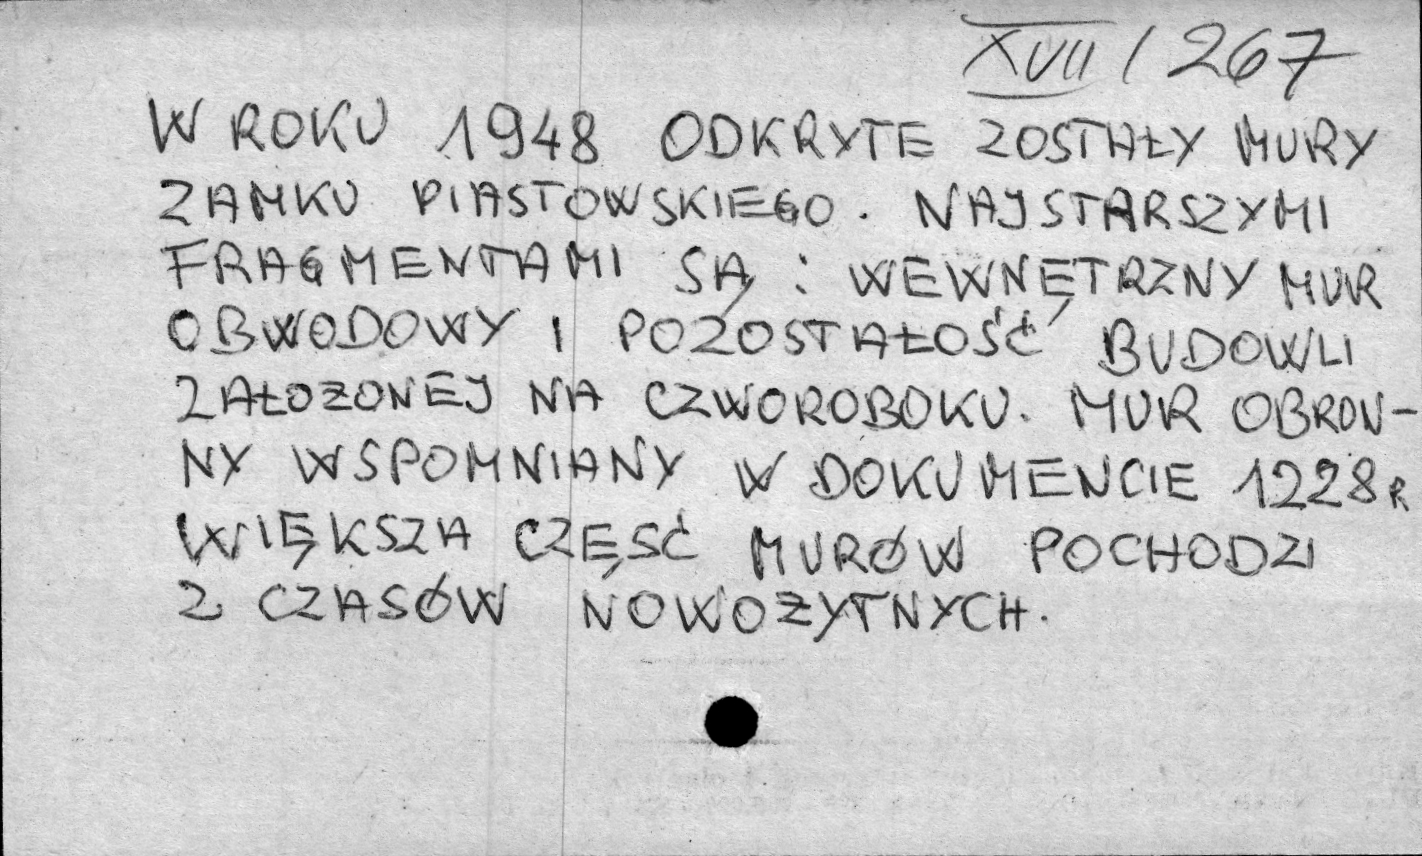 XVII / 267
W ROKU 1948 ODKRYTE ZOSTAŁY MURY
ZAMKU PIASTOWSKIEGO. NAJSTARSZYMI
FRAGMENTAMI SĄ : WEWNĘTRZNY MUR
OBWODOWY I POZOSTAŁOŚĆ BUDOWLI
ZAŁOŻONEJ NA CZWOROBOKU. MUR OBRON-
NY WSPOMNIANY W DOKUMENCIE 1228 R
WIĘKSZA CZĘSĆ MURÓW POCHODZI
Z CZASÓW NOWOŻYTNYCH.